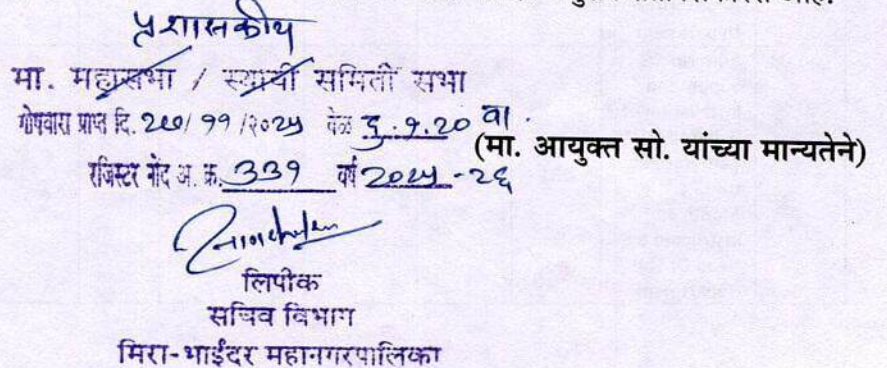 प्रशासकीय
मा. महासभा / स्थायी समिती सभा
गोषवारा प्राप्त दि. २७/११/२०२५ वेळ दु. १.२० वा.
(मा. आयुक्त सो. यांच्या मान्यतेने)
रजिस्टर नोंद अ. क्र. ३३१ वर्ष २०२५-२६
लिपीक
सचिव विभाग
मिरा-भाईंदर महानगरपालिका